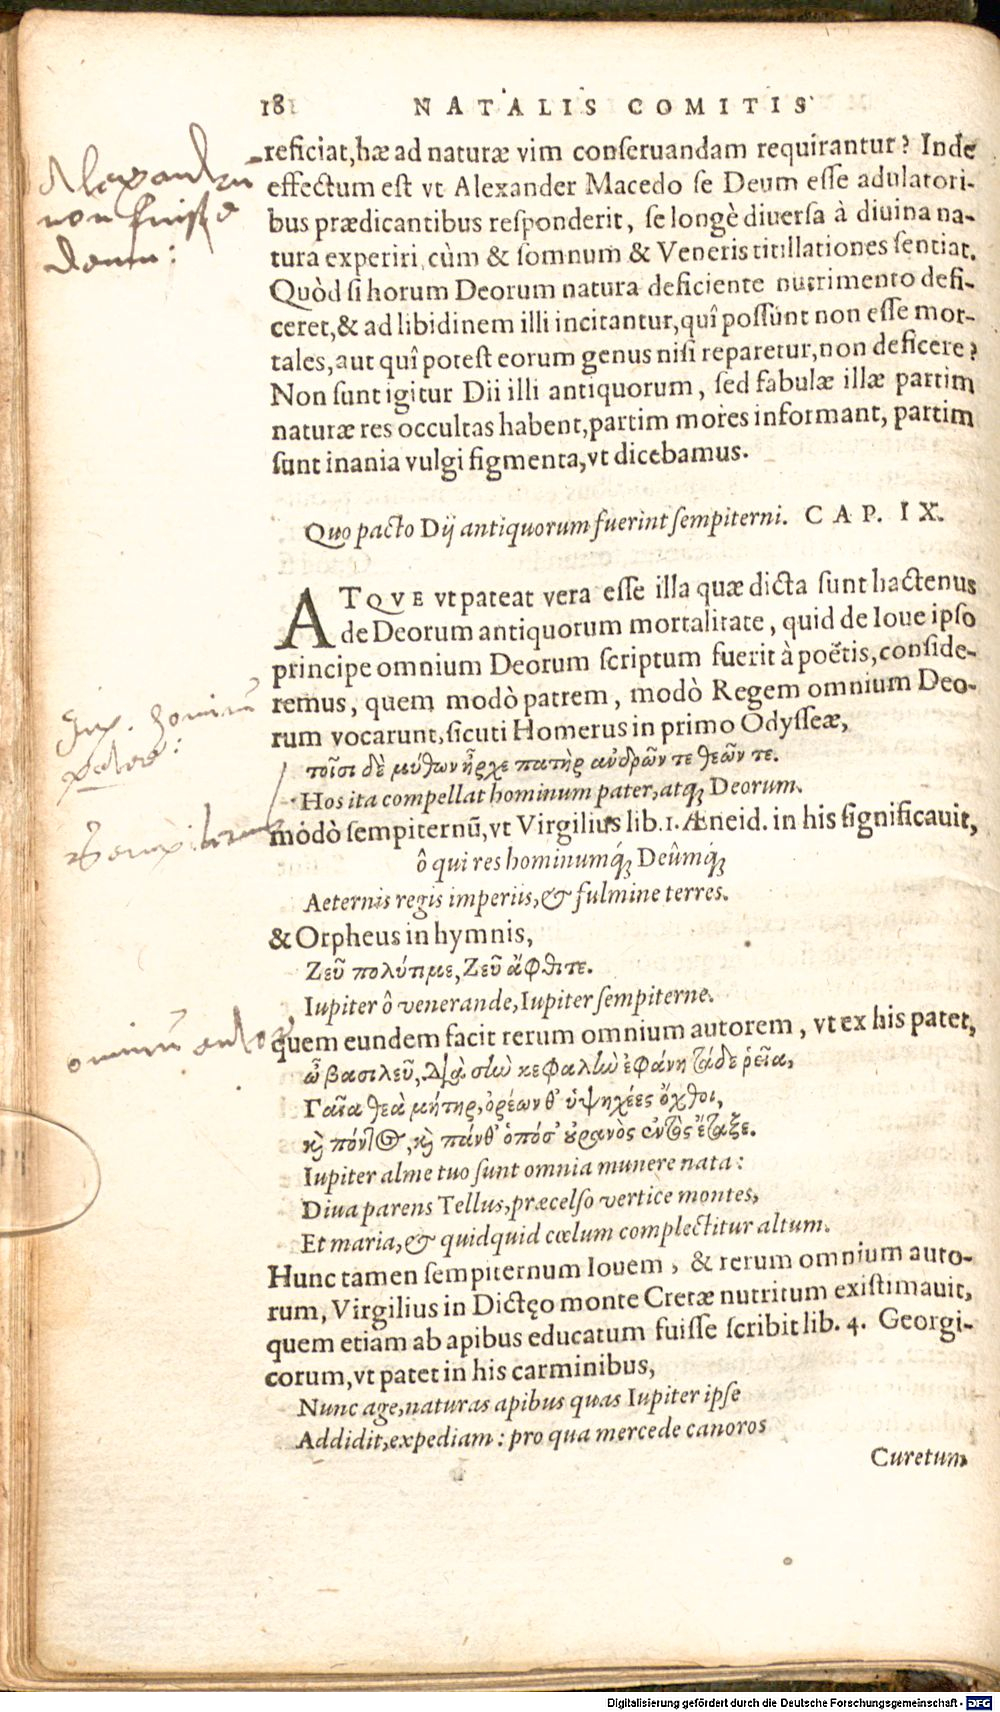 18 NATALIS COMITIS
reficiat, hæ ad naturæ vim conseruandam requirantur? Inde
effectum est vt Alexander Macedo se Deum esse adulatori-
bus prædicantibus responderit, se longè diuersa à diuina na-
tura experiri, cùm & somnum & Veneris titillationes sentiat.
Quòd si horum Deorum natura deficiente nutrimento defi-
ceret, & ad libidinem illi incitantur, quî possunt non esse mor-
tales, aut quî potest eorum genus nisi reparetur, non deficere?
Non sunt igitur Dii illi antiquorum, sed fabulæ illæ partim
naturæ res occultas habent, partim mores informant, partim
sunt inania vulgi figmenta, vt dicebamus.
Alexandrum
non fuisse
deum:
Quo pacto Dij antiquorum fuerint sempiterni. CAP. IX.
ATQVE vt pateat vera esse illa quæ dicta sunt hactenus
de Deorum antiquorum mortalitate, quid de Ioue ipso
principe omnium Deorum scriptum fuerit à poëtis, conside-
remus, quem modò patrem, modò Regem omnium Deo-
rum vocarunt, sicuti Homerus in primo Odysseæ,
τοῖσι δὲ μύθων ἦρχε πατὴρ ἀνδρῶν τε θεῶν τε.
Hos ita compellat hominum pater, atq; Deorum.
modò sempiternū, vt Virgilius lib. 1. Æneid. in his significauit,
ô qui res hominumq́; Deûmq́;
Aeternis regis imperiis, & fulmine terres.
& Orpheus in hymnis,
Ζεῦ πολύτιμε, Ζεῦ ἄφθιτε.
Iupiter ô venerande, Iupiter sempiterne.
quem eundem facit rerum omnium autorem, vt ex his patet,
ὦ βασιλεῦ, διὰ σὴν κεφαλὴν ἐφάνη τάδε ῥεῖα,
Γαῖα θεὰ μήτηρ, ὀρέων θ' ὑψηχέες ὄχθοι,
καὶ πόντος, καὶ πάνθ' ὁπόσ' οὐρανὸς ἐντὸς ἔταξε.
Iupiter alme tuo sunt omnia munere nata:
Diua parens Tellus, præcelso vertice montes,
Et maria, & quidquid cœlum complectitur altum.
Hunc tamen sempiternum Iouem, & rerum omnium auto-
rum, Virgilius in Dictęo monte Cretæ nutritum existimauit,
quem etiam ab apibus educatum fuisse scribit lib. 4. Georgi-
corum, vt patet in his carminibus,
Nunc age, naturas apibus quas Iupiter ipse
Addidit, expediam: pro qua mercede canoros
Curetum
Iup. hominū
pater:
omniū autor
Digitalisierung gefördert durch die Deutsche Forschungsgemeinschaft - DFG